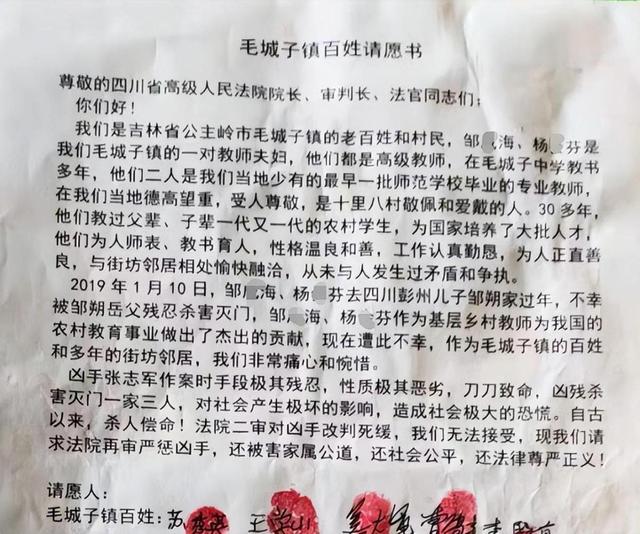 毛城子镇百姓请愿书
尊敬的四川省高级人民法院院长、审判长、法官同志们：
你们好！
我们是吉林省公主岭市毛城子镇的老百姓和村民，邹海、杨芬是
我们毛城子镇的一对教师夫妇，他们都是高级教师，在毛城子中学教书
多年，他们二人是我们当地少有的最早一批师范学校毕业的专业教师，
在我们当地德高望重，受人尊敬，是十里八村敬佩和爱戴的人。30多年，
他们教过父辈、子辈一代又一代的农村学生，为国家培养了大批人才，
他们为人师表、教书育人，性格温良和善，工作认真勤恳，为人正直善
良，与街坊邻居相处愉快融洽，从未与人发生过矛盾和争执。
2019年1月10日，邹海、杨芬去四川彭州儿子邹朔家过年，不幸
被邹朔岳父残忍杀害灭门，邹海、杨芬作为基层乡村教师为我国的
农村教育事业做出了杰出的贡献，现在遭此不幸，作为毛城子镇的百姓
和多年的街坊邻居，我们非常痛心和惋惜。
凶手张志军作案时手段极其残忍，性质极其恶劣，刀刀致命，凶残杀
害灭门一家三人，对社会产生极坏的影响，造成社会极大的恐慌。自古
以来，杀人偿命！法院二审对凶手改判死缓，我们无法接受，现我们请
求法院再审严惩凶手，还被害家属公道，还社会公平，还法律尊严正义！
请愿人：
毛城子镇百姓：苏 王